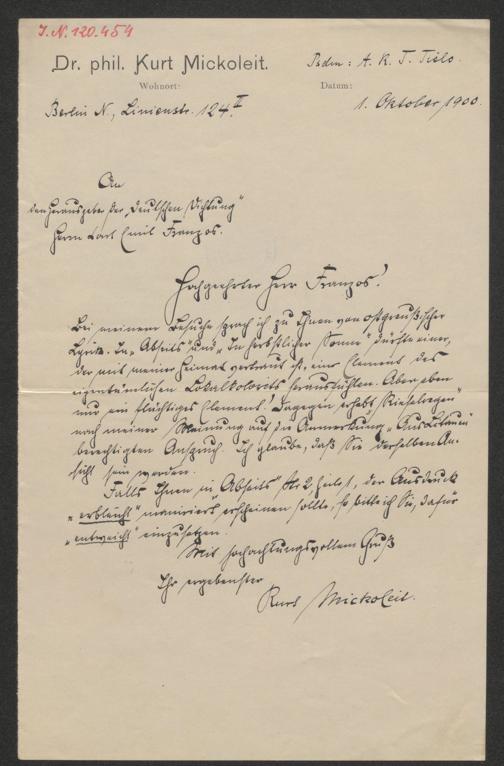 I.N. 120.454
Dr. phil. Kurt Mickoleit.
Pšdm: A. K. T. Tielo.
Wohnort:
Datum:
Berlin N., Linienstr. 124 II
1. Oktober 1900.
An
den Herausgeber der „Deutschen Dichtung“
Herrn Karl Emil Franzos.
Hochgeehrter Herr Franzos!
Bei meinem Besuche sprach ich zu Ihnen von ostpreußischer
Lyrik. In „Abseits“ und „In herbstlicher Sonne“ dürfte einer,
der mit meiner Heimat vertraut ist, eine Element des
eigentümlichen Lokalkolorits herausfühlen. Aber eben
nur ein flüchtiges Element! Dagegen erhebt „Rieselregen“
nach meiner Meinung auf die Anmerkung „Aus Litauen“
berechtigten Anspruch. Ich glaube, daß Sie derselben An-
sicht sein werden.
Falls Ihnen in „Abseits“ Str. 2, Zeile 1, der Ausdruck
„erbleicht“ manieriert erscheinen sollte, so bitte ich Sie, dafür
„entweicht“ einzusetzen.
Mit hochachtungsvollem Gruß
Ihr ergebenster
Kurt Mickoleit.